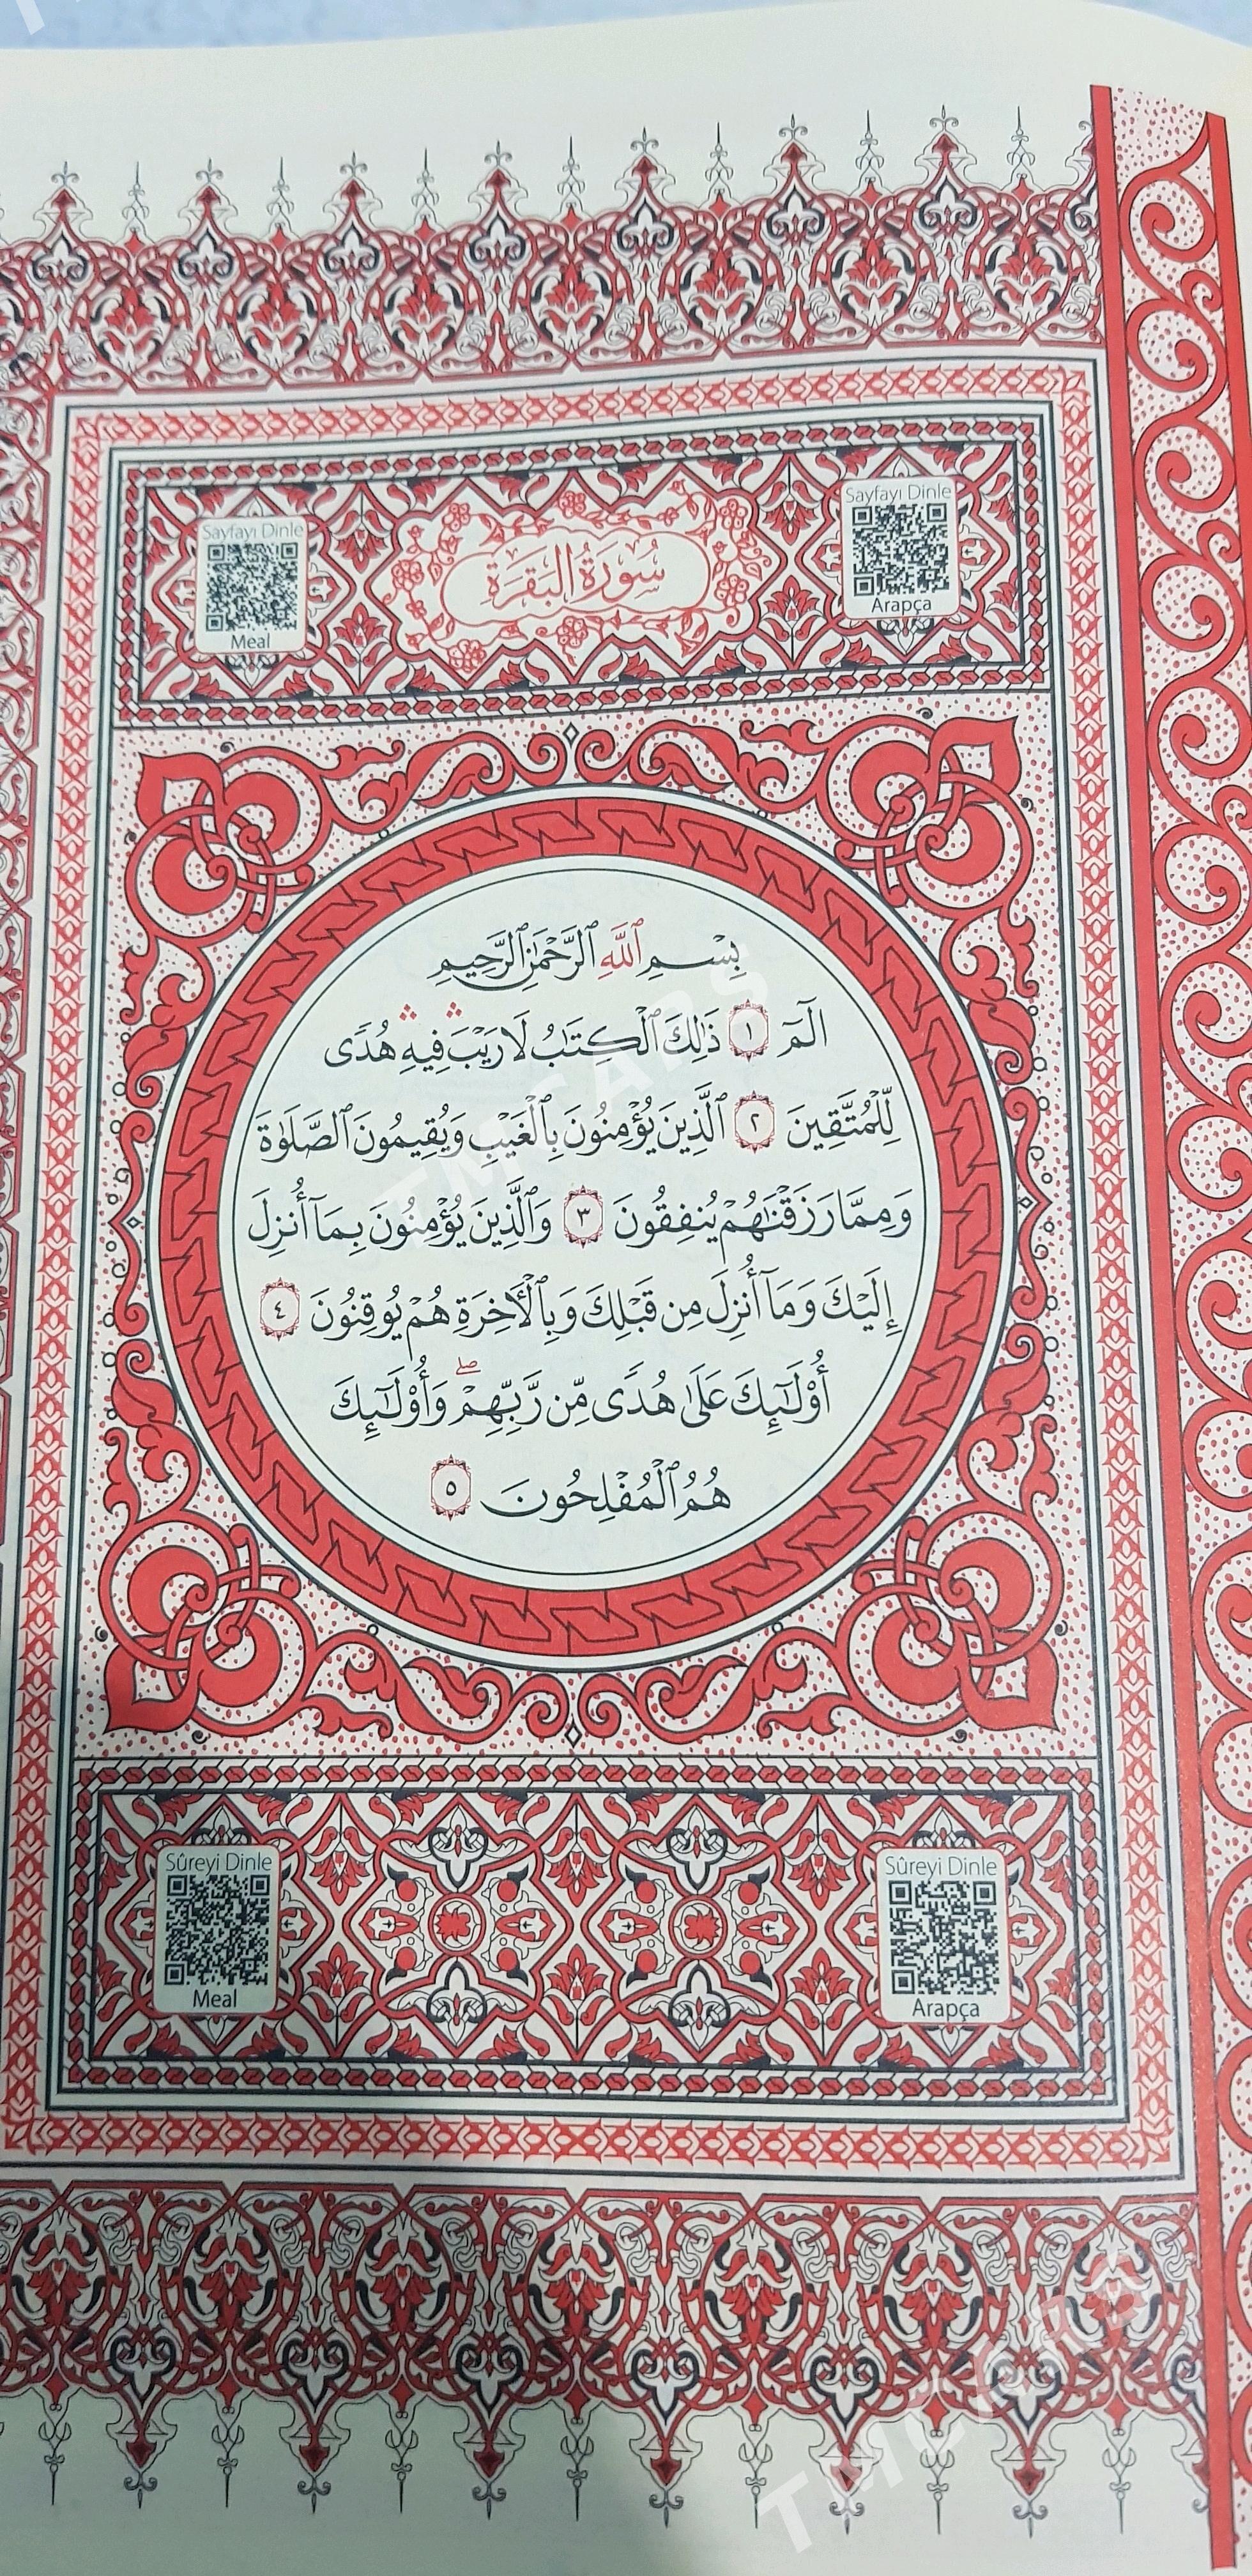 Sayfayı Dinle
Arapça
سُورَةُ الْبَقَرَةِ
Sayfayı Dinle
Meal
بِسْمِ ٱللَّهِ ٱلرَّحْمَٰنِ ٱلرَّحِيمِ
الٓمٓ ١ ذَٰلِكَ ٱلْكِتَٰبُ لَا رَيْبَ ۛ فِيهِ ۛ هُدًى
لِّلْمُتَّقِينَ ٢ ٱلَّذِينَ يُؤْمِنُونَ بِٱلْغَيْبِ وَيُقِيمُونَ ٱلصَّلَوٰةَ
وَمِمَّا رَزَقْنَٰهُمْ يُنفِقُونَ ٣ وَٱلَّذِينَ يُؤْمِنُونَ بِمَآ أُنزِلَ
إِلَيْكَ وَمَآ أُنزِلَ مِن قَبْلِكَ وَبِٱلْأَخِرَةِ هُمْ يُوقِنُونَ ٤
أُوْلَٰٓئِكَ عَلَىٰ هُدًى مِّن رَّبِّهِمْ ۖ وَأُوْلَٰٓئِكَ
هُمُ ٱلْمُفْلِحُونَ ٥
Sûreyi Dinle
Arapça
Sûreyi Dinle
Meal
TMCARS
TMCARS